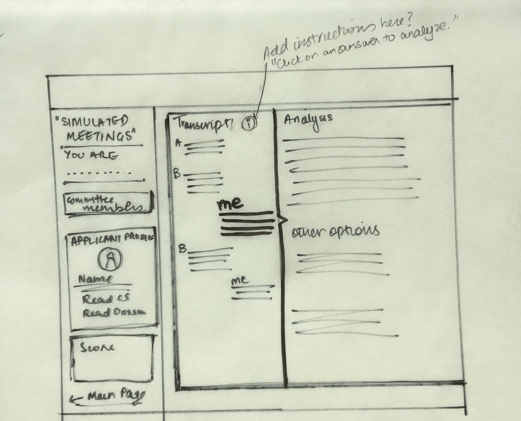 Add instructions here?
"Click on an answer to analyze."
"SIMULATED
MEETINGS"
YOU ARE
Committee
members
APPLICANT
Name
Read CS
Read
Score
← Main Page
Transcript
i
A
B
me
B
me
Analysis
other options